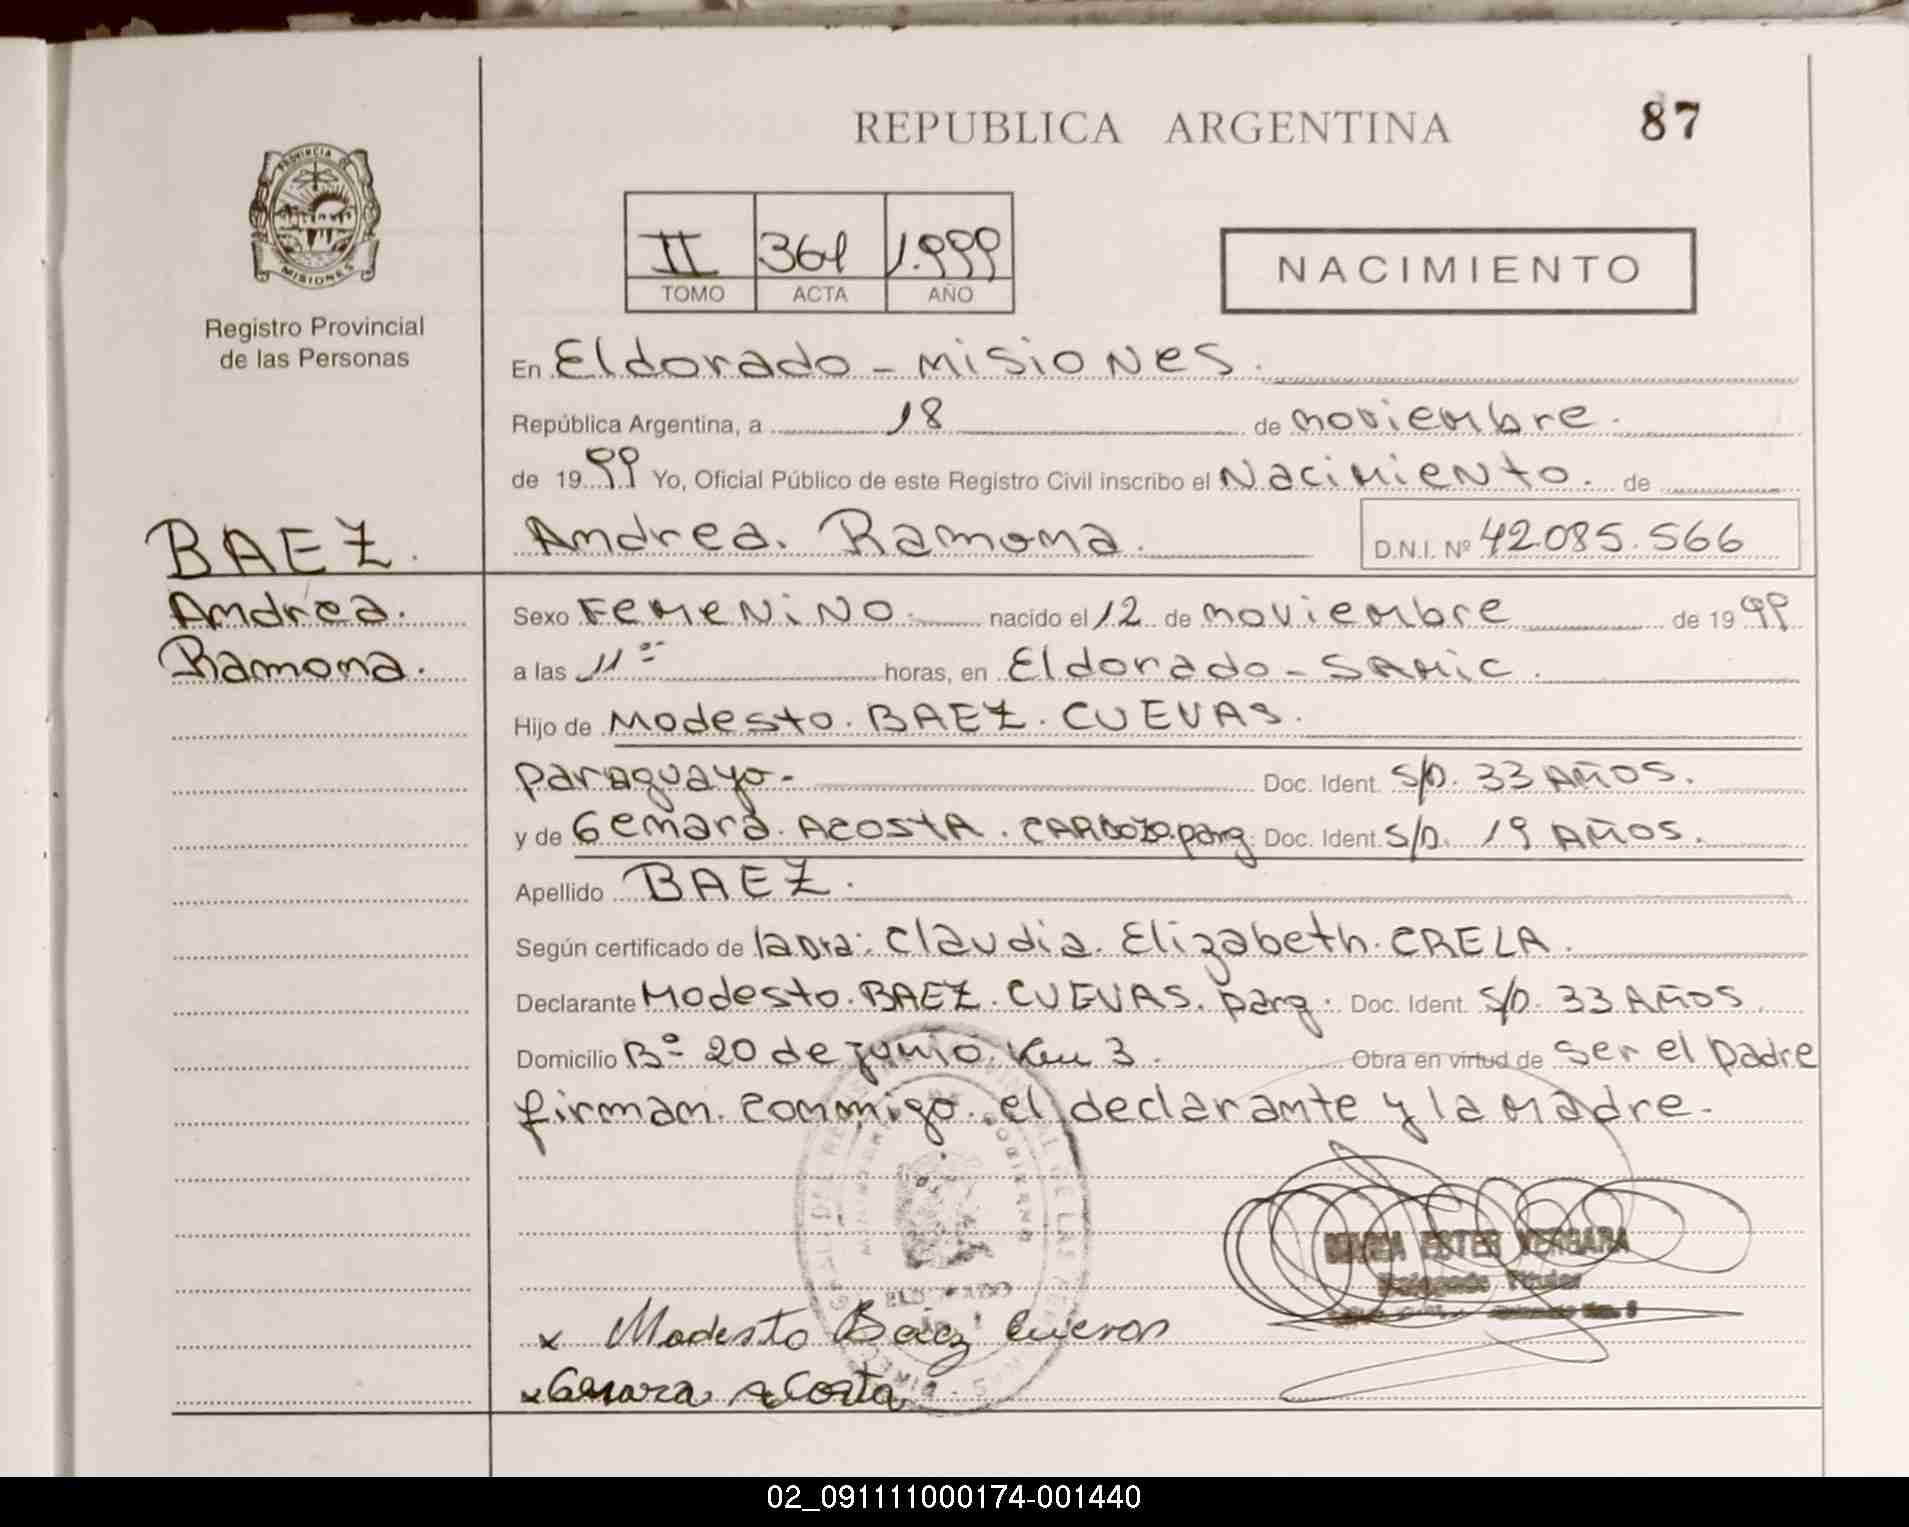 REPUBLICA ARGENTINA
87
PROVINCIA DE
MISIONES
Registro Provincial
de las Personas
II 361 1.999
TOMO ACTA AÑO
NACIMIENTO
En Eldorado - Misiones.
República Argentina, a 18 de noviembre.
de 1999 Yo, Oficial Público de este Registro Civil inscribo el Nacimiento. de
Andrea. Ramona. D.N.I. Nº 42.085.566
BAEZ.
Andrea.
Ramona.
Sexo Femenino. nacido el 12 de noviembre de 1999
a las 11 horas, en Eldorado - SAMIC.
Hijo de Modesto. BAEZ. CUEVAS.
paraguayo- Doc. Ident. S/D. 33 AÑOS.
y de Gemara. ACOSTA. CARDOZO. parg. Doc. Ident. S/D. 19 AÑOS.
Apellido BAEZ.
Según certificado de la Dra: Claudia. Elizabeth. CRELA.
Declarante Modesto. BAEZ. CUEVAS. parg. Doc. Ident. S/D. 33 AÑOS.
Domicilio Bº 20 de junio. Km 3. Obra en virtud de ser el padre
firman. conmigo. el declarante y la madre.
ESTER VERGARA
Titular
x Modesto Baez Cuevas
x Gemara Acosta
02_091111000174-001440